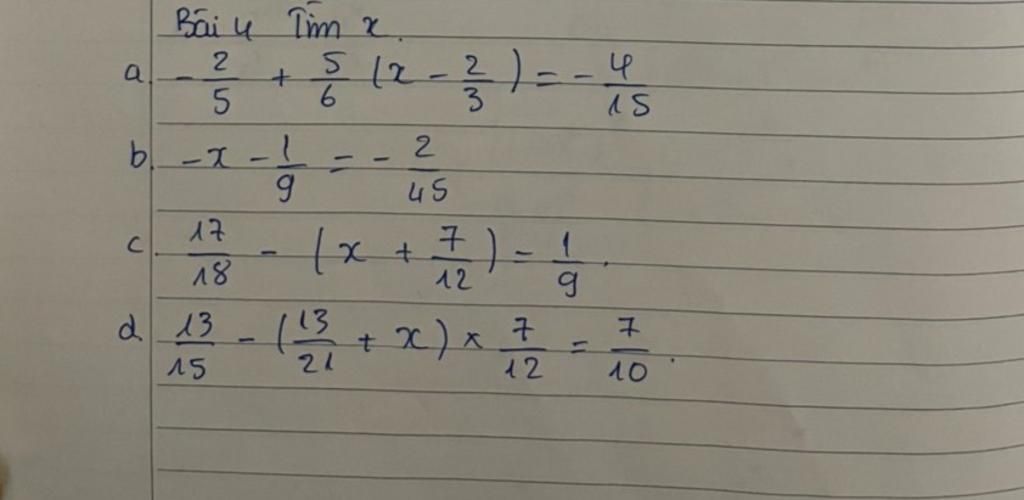 Bài 4 Tìm x.
a. - 2/5 + 5/6 (x - 2/3) = - 4/15
b. - x - 1/9 = - 2/45
c. 17/18 - (x + 7/12) = 1/9.
d. 13/15 - (13/21 + x) × 7/12 = 7/10.